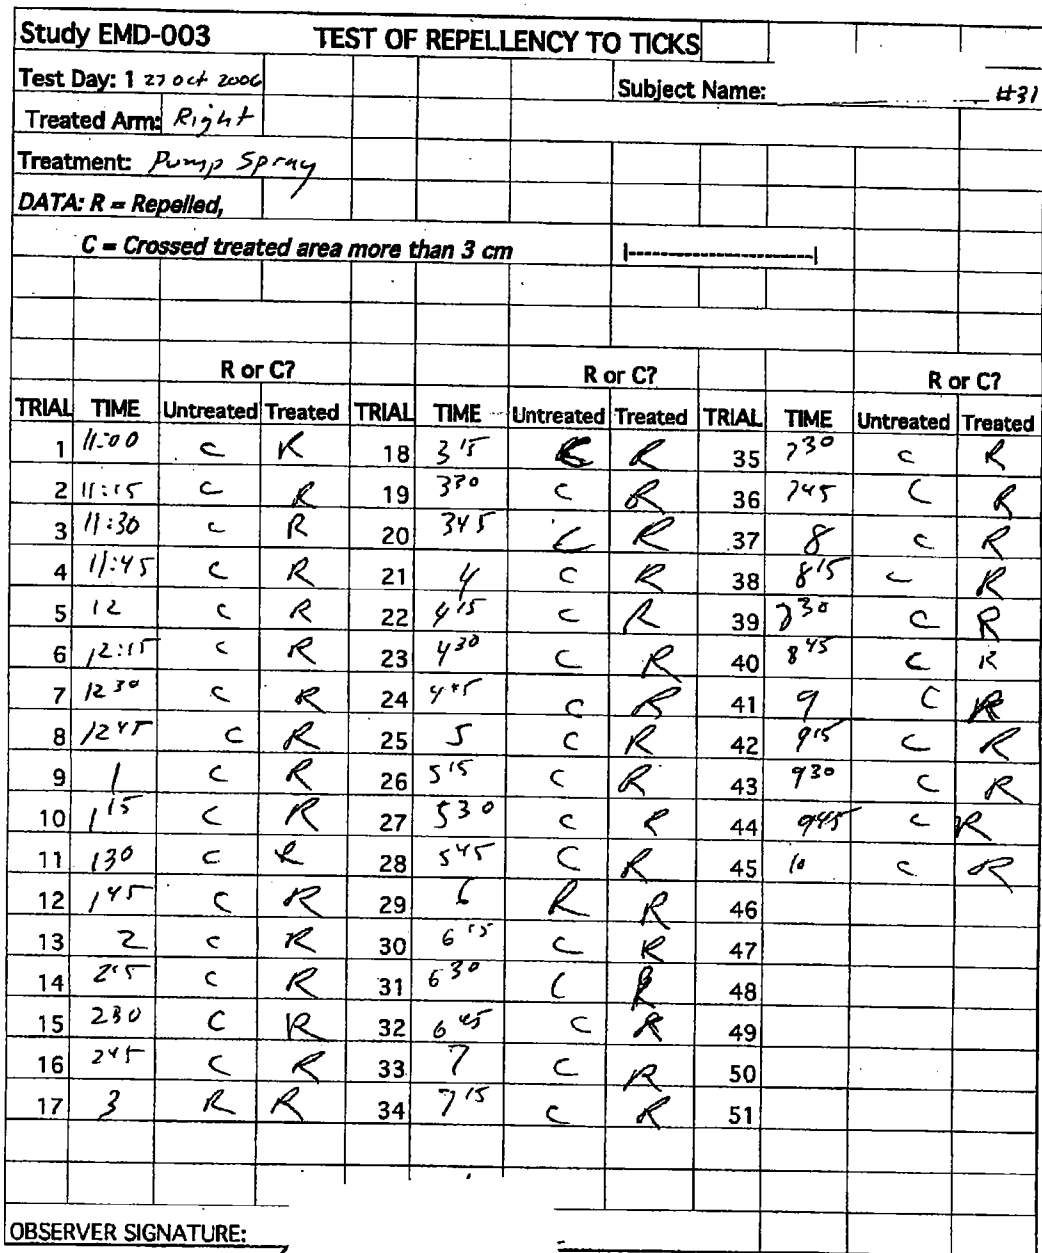 Study EMD-003 TEST OF REPELLENCY TO TICKS
Test Day: 1 27 oct 2006 Subject Name: #31
Treated Arm: Right
Treatment: Pump Spray
DATA: R = Repelled,
C = Crossed treated area more than 3 cm |-----------------------|
R or C? R or C? R or C?
TRIAL TIME Untreated Treated TRIAL TIME Untreated Treated TRIAL TIME Untreated Treated
1 11:00 C R 18 3 15 C R 35 7 30 C R
2 11:15 C R 19 3 30 C R 36 7 45 C R
3 11:30 C R 20 3 45 C R 37 8 C R
4 11:45 C R 21 4 C R 38 8 15 C R
5 12 C R 22 4 15 C R 39 8 30 C R
6 12:15 C R 23 4 30 C R 40 8 45 C R
7 12 30 C R 24 4 45 C R 41 9 C R
8 12 45 C R 25 5 C R 42 9 15 C R
9 1 C R 26 5 15 C R 43 9 30 C R
10 1 15 C R 27 5 30 C R 44 9 45 C R
11 1 30 C R 28 5 45 C R 45 10 C R
12 1 45 C R 29 6 R R 46
13 2 C R 30 6 15 C R 47
14 2 15 C R 31 6 30 C R 48
15 2 30 C R 32 6 45 C R 49
16 2 45 C R 33 7 C R 50
17 3 R R 34 7 15 C R 51
OBSERVER SIGNATURE: